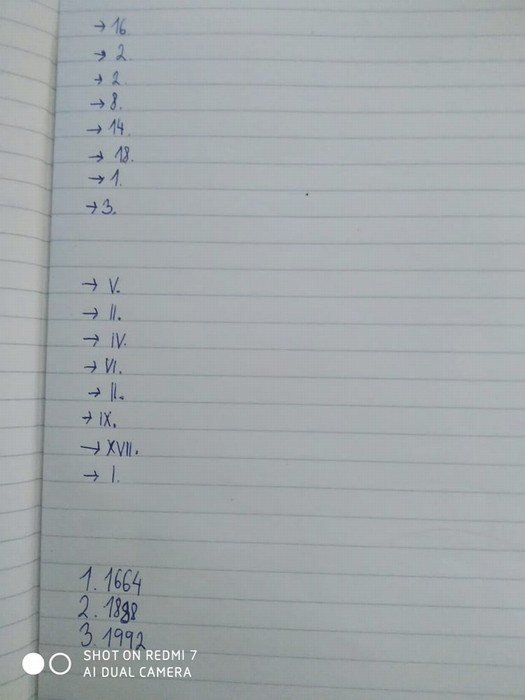 → 16.
→ 2.
→ 2.
→ 8.
→ 14.
→ 18.
→ 1.
→ 3.
→ V.
→ II.
→ IV.
→ VI.
→ II.
→ IX.
→ XVII.
→ I.
1. 1664
2. 1898
3. 1992
SHOT ON REDMI 7
AI DUAL CAMERA